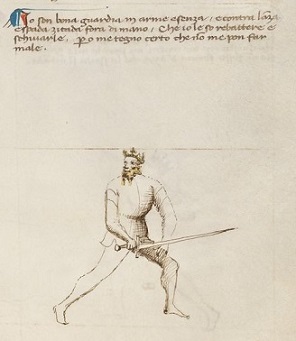 Io son bona guardia in arme e senza, e contra lanza
e spada zitada fora di mano, Che io le so rebattere e
schivarle. Pero me tegno certo che no me pon far
male.